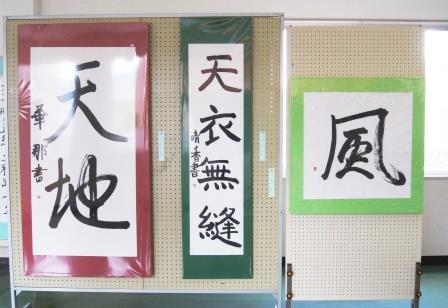 天地
華那書
天衣無縫
晴香書
風